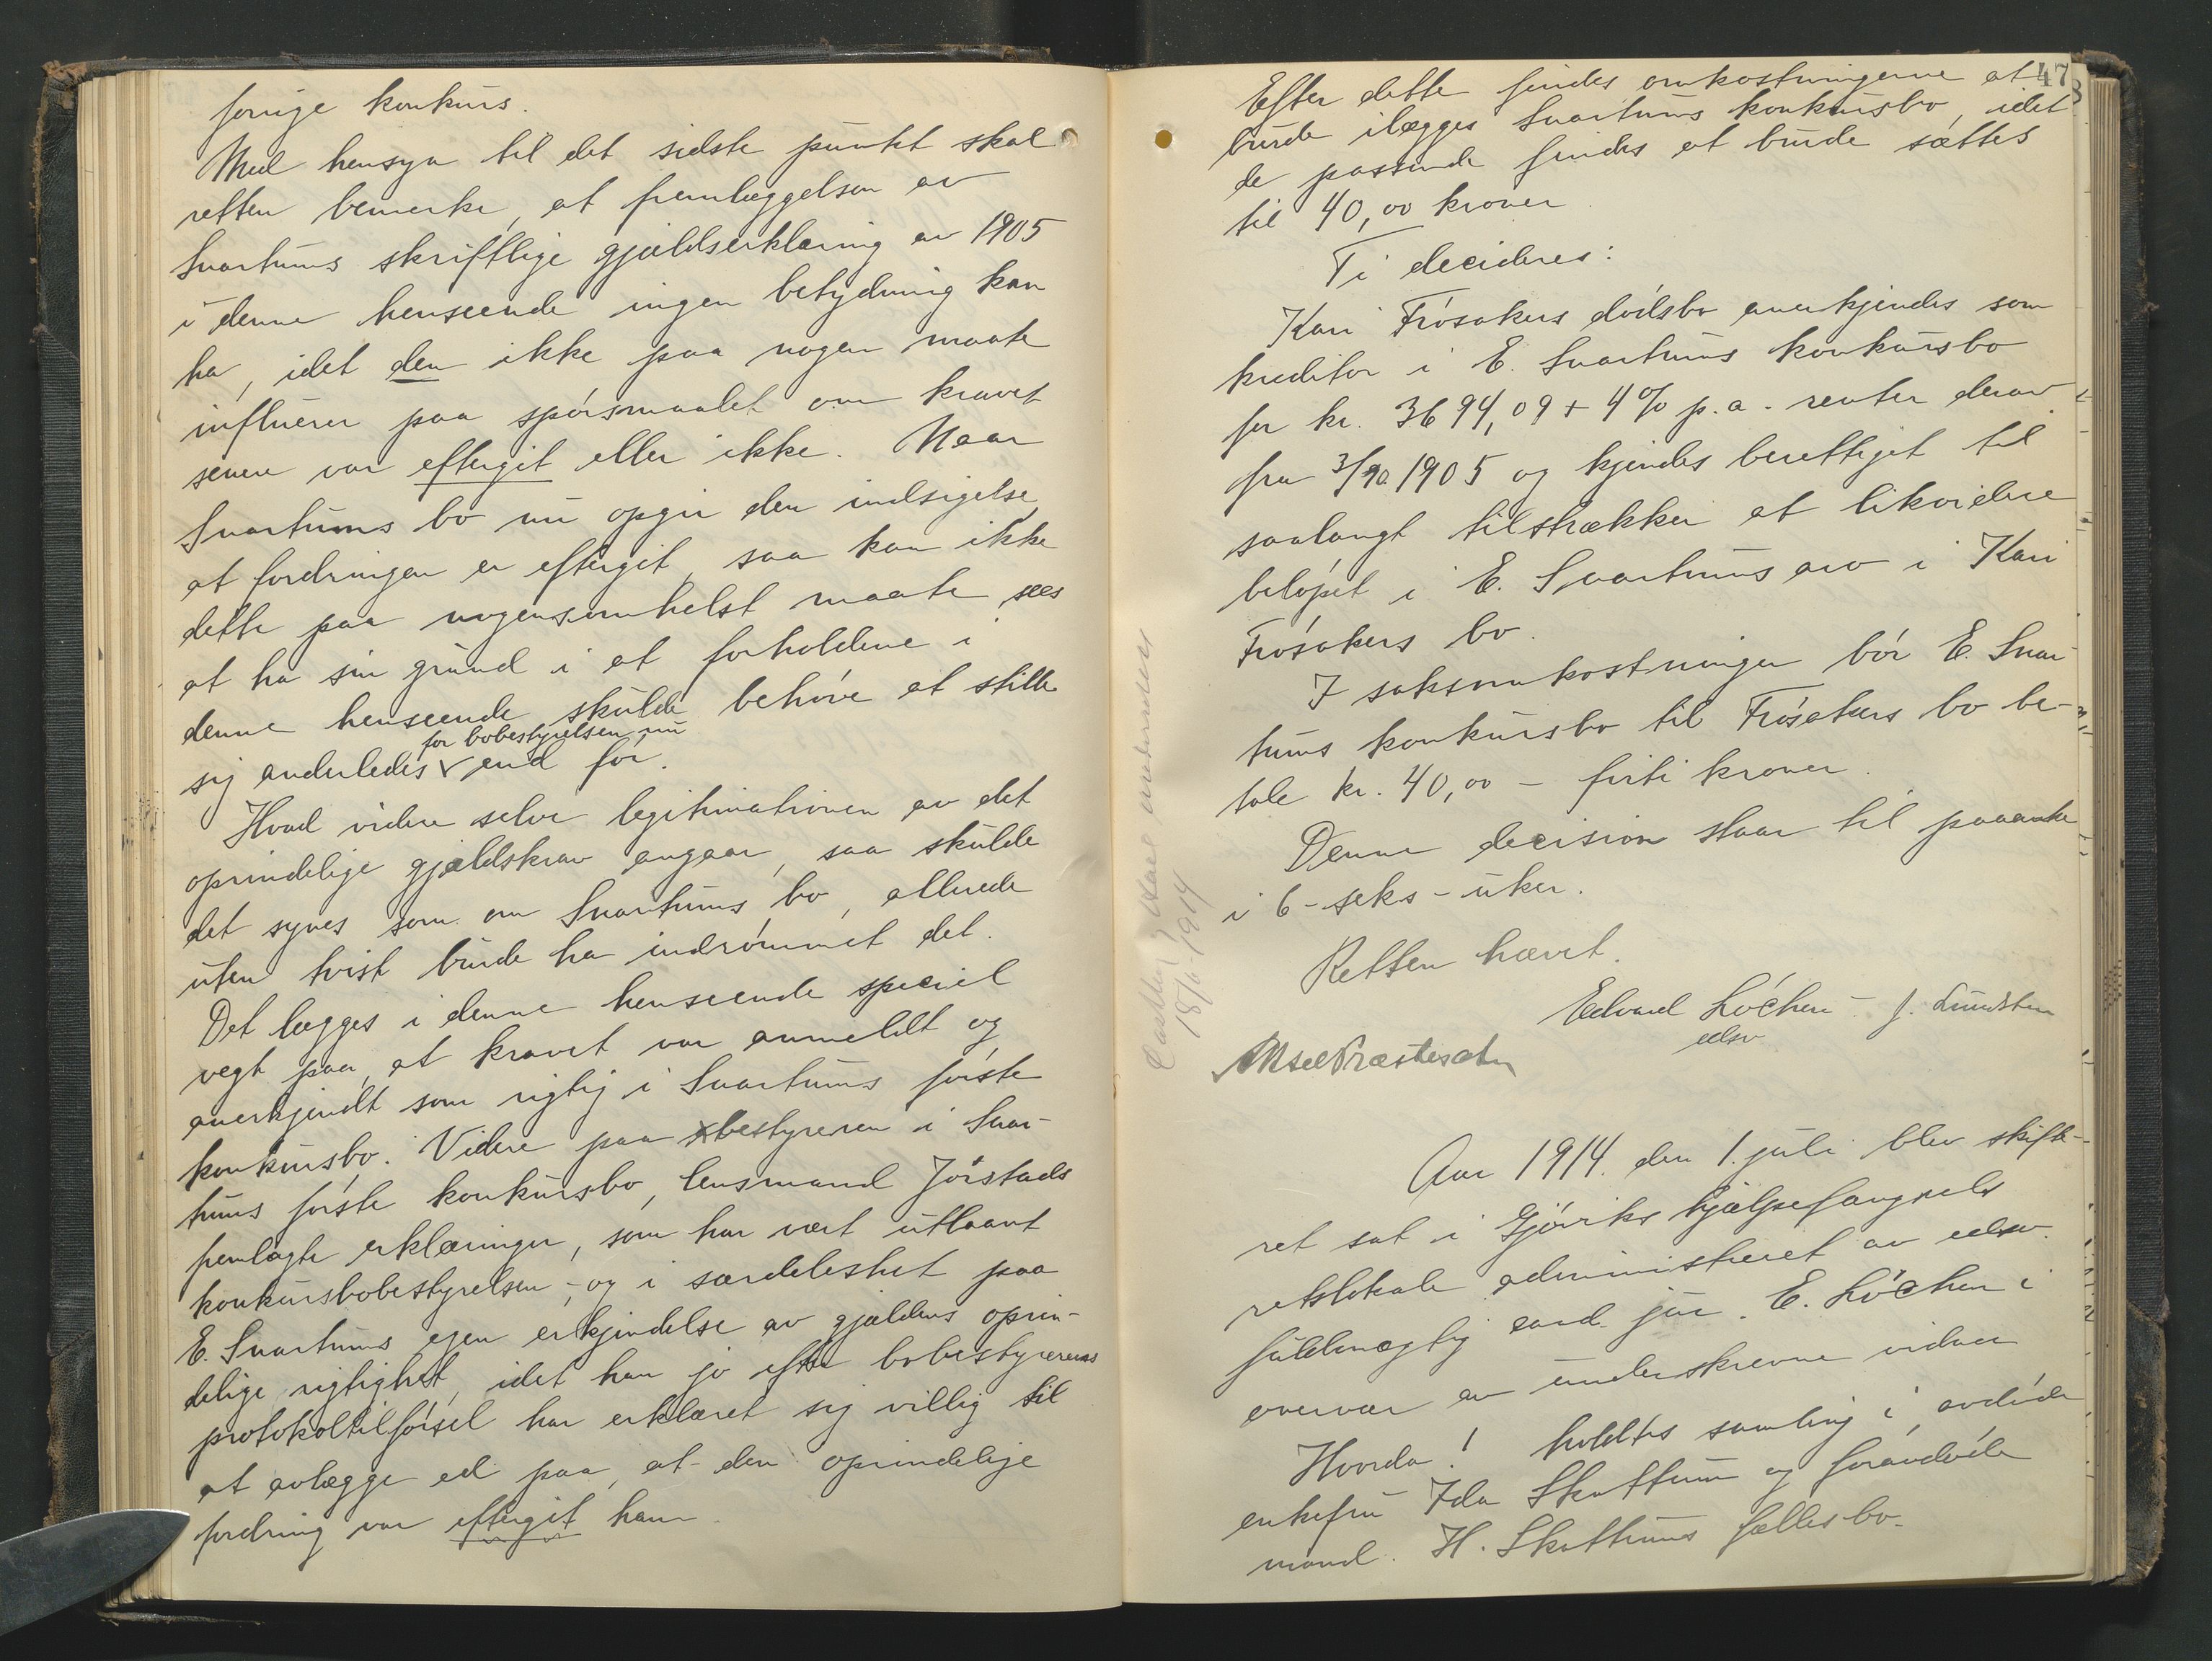 forrige konkurs.
Med hensyn til det sidste punkt skal
retten bemerke, at fremlæggelsen av
Svartums skriftlige gjældserklæring av 1905
i denne henseende ingen betydning kan
ha, idet den ikke paa nogen maate
influerer paa spørsmaalet om kravet
senere var eftergit eller ikke. Naar
Svartums bo nu opgir den indsigelse,
at fordringen er eftergit, saa kan ikke
dette paa nogensomhelst maate sees
at ha sin grund i at forholdene i
denne henseende skulde behøve at stille
sig anderledes for bobestyrelsen nu end før.
Hvad videre selve legitimationen av det
oprindelige gjældskrav angaar, saa skulde
det synes som om Svartums bo, allerede
uten tvist burde ha indrømmet det.
Det lægges i denne henseende speciel
vegt paa, at kravet var anmeldt og
anerkjendt som rigtig i Svartums første
konkursbo. Videre paa bestyreren i Svar-
tums første konkursbo, lensmand Jørstads
fremlagte erklæringer, som har vært utlaant
konkursbobestyrelsen, - og i særdeleshet paa
E. Svartums egen erkjendelse av gjældens oprin-
delige rigtighet, idet han jo efter bobestyrerens
protokoltilførsel har erklæret sig villig til
at avlægge ed paa, at den oprindelige
fordring var eftergit ham.
47
Efter dette findes omkostningerne at
burde ilægges Svartums konkursbo, idet
de passende findes at burde sættes
til 40,00 kroner.
Ti decideres:
Kari Frøsakers dødsbo anerkjendes som
kreditor i E. Svartums konkursbo
for kr. 3694,09 + 4% p.a. renter derav
fra 3/10 1905 og kjendes berettiget til
saalangt tilstrækker at likvidere
beløpet i E. Svartums arv i Kari
Frøsakers bo.
I saksomkostninger bør E. Svar-
tums konkursbo til Frøsakers bo be-
tale kr. 40,00 - firti kroner.
Denne decision staar til paaanke
i 6 - seks - uker.
Retten hævet.
Edvard Løchen - J. Lundsten
edsv
Aksel Præstesæter
18/6 1914
Aar 1914 den 1. juli blev skifte-
ret sat i Gjøviks hjælpefængsels
retslokale administreret av edsv.
fuldmægtig cand. jur. E. Løchen i
overvær av underskrevne vidner
Hvorda! holdtes samling i avdøde
enkefru Ida Skattum og foravdøde
mand H. Skattums fællesbo.